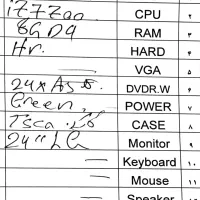 i77700 CPU ۲
8GD4 RAM ۳
Hr. HARD ۴
— VGA ۵
24xAs DVDR.W ۶
Green, POWER ۷
Tsca CASE ۸
24" LG Monitor ۹
— Keyboard ۱۰
— Mouse ۱۱
Speaker